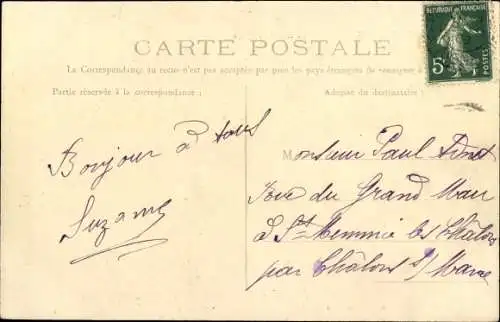 CARTE POSTALE
RÉPUBLIQUE FRANÇAISE
5c
POSTES
La Correspondance au recto n'est pas acceptée par tous les pays étrangers (Se renseigner à
Partie réservée à la correspondance :
Adresse du destinataire
Bonjour à tous
Suzanne
Monsieur Paul
Rue du Grand Mau
à St Memmie les Châlons
par Châlons s/ Marne